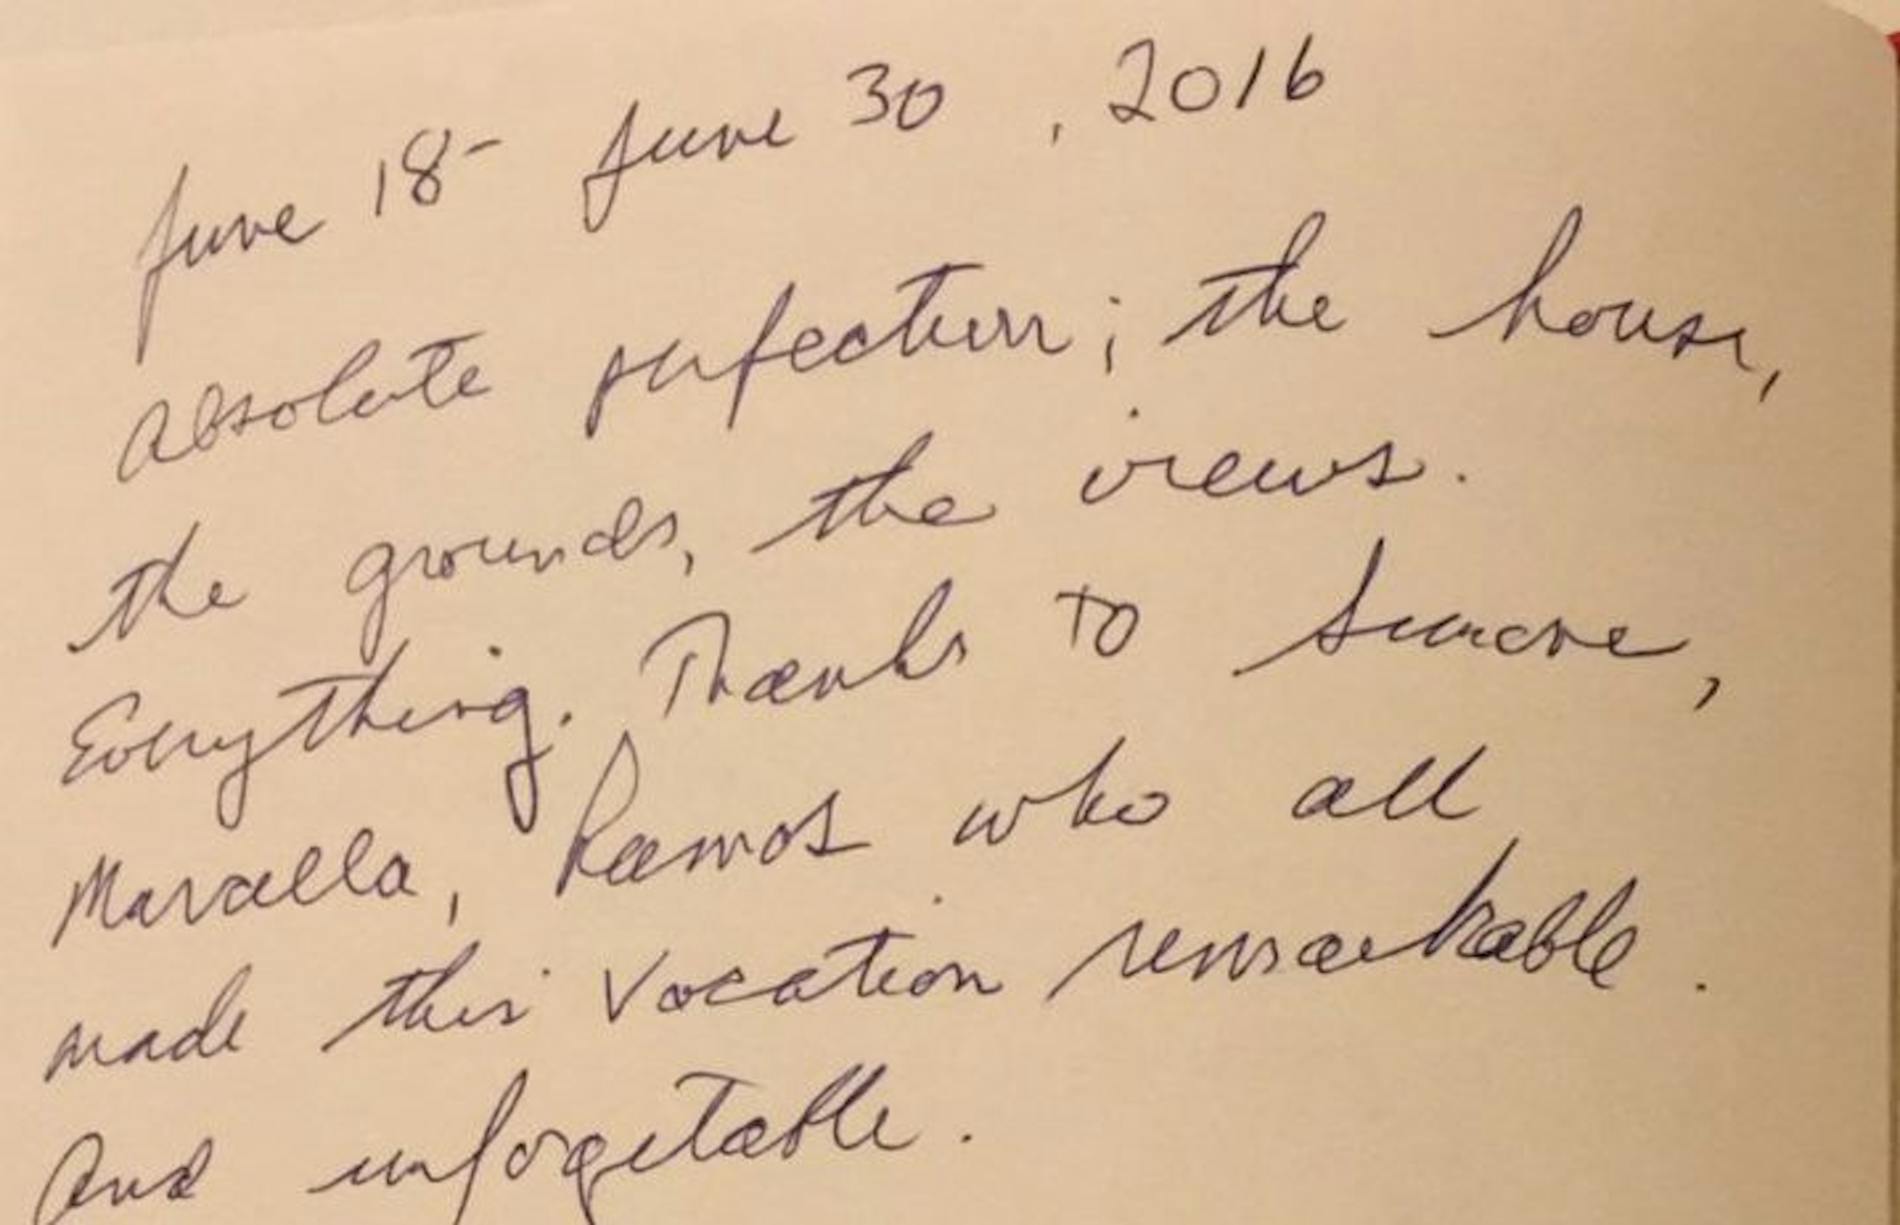 June 18 - June 30, 2016
Absolute perfection; the house,
the grounds, the views.
Everything. Thanks to Simone,
Marcella, Ramos who all
made this vacation remarkable.
And unforgetable.